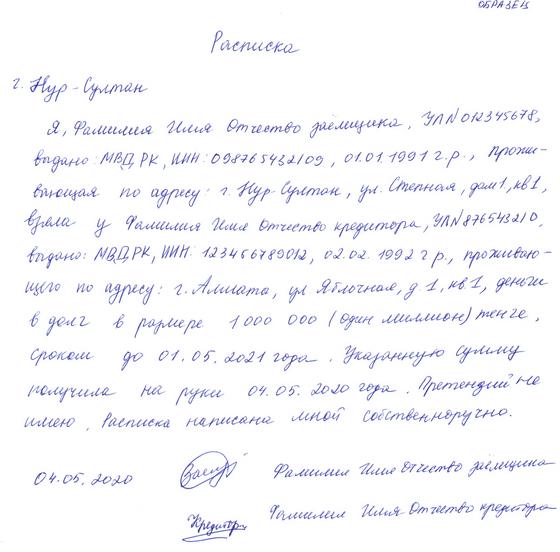 ОБРАЗЕЦ
Расписка
г. Нур-Султан
Я, Фамилия Имя Отчество заёмщика, УЛN012345678,
выдано: МВД РК, ИИН: 098765432109, 01.01.1991 г.р., прожи-
вающая по адресу: г. Нур-Султан, ул. Степная, дом 1, кв 1,
взяла у Фамилия Имя Отчество кредитора, УЛN876543210,
выдано: МВД РК, ИИН: 123456789012, 02.02.1992 г р., проживаю-
щего по адресу: г. Алмата, ул Яблочная, д. 1, кв. 1, деньги
в долг в размере 1 000 000 (один миллион) тенге,
сроком до 01.05.2021 года. Указанную сумму
получила на руки 04.05.2020 года. Претендий не
имею. Расписка написана мной собственноручно.
04.05.2020 Заемщ Фамилия Имя Отчество заёмщика
Кредитор Фамилия Имя Отчество кредитора